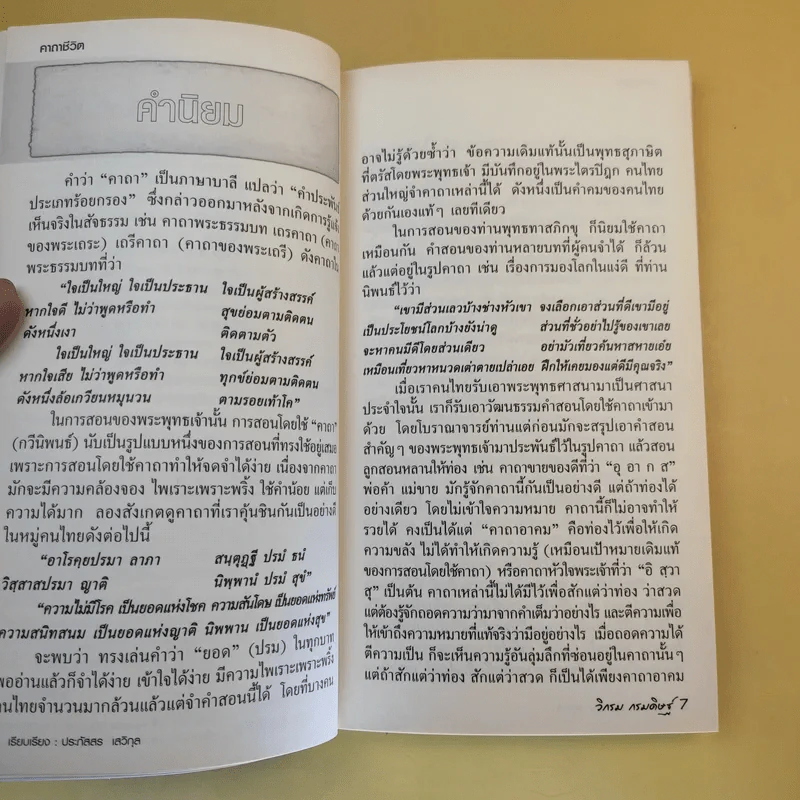 คาถาชีวิต
คำนิยม
คำว่า “คาถา” เป็นภาษาบาลี แปลว่า “คำประพันธ์
ประเภทร้อยกรอง” ซึ่งกล่าวออกมาหลังจากเกิดการรู้แจ้ง
เห็นจริงในสัจธรรม เช่น คาถาพระธรรมบท เถรคาถา (คาถา
ของพระเถระ) เถรีคาถา (คาถาของพระเถรี) ดังคาถาใน
พระธรรมบทที่ว่า
“ใจเป็นใหญ่ ใจเป็นประธาน ใจเป็นผู้สร้างสรรค์
หากใจดี ไม่ว่าพูดหรือทำ สุขย่อมตามติดตน
ดังหนึ่งเงา ติดตามตัว
ใจเป็นใหญ่ ใจเป็นประธาน ใจเป็นผู้สร้างสรรค์
หากใจเสีย ไม่ว่าพูดหรือทำ ทุกข์ย่อมตามติดตน
ดังหนึ่งล้อเกวียนหมุนวน ตามรอยเท้าโค”
ในการสอนของพระพุทธเจ้านั้น การสอนโดยใช้ “คาถา”
(กวีนิพนธ์) นับเป็นรูปแบบหนึ่งของการสอนที่ทรงใช้อยู่เสมอ
เพราะการสอนโดยใช้คาถาทำให้จดจำได้ง่าย เนื่องจากคาถา
มักจะมีความคล้องจอง ไพเราะเพราะพริ้ง ใช้คำน้อย แต่เก็บ
ความได้มาก ลองสังเกตดูคาถาที่เราคุ้นชินกันเป็นอย่างดี
ในหมู่คนไทยดังต่อไปนี้
“อาโรคฺยปรมา ลาภา สนฺตุฏฺฐี ปรมํ ธนํ
วิสฺสาสปรมา ญาติ นิพฺพานํ ปรมํ สุขํ”
“ความไม่มีโรค เป็นยอดแห่งโชค ความสันโดษ เป็นยอดแห่งทรัพย์
ความสนิทสนม เป็นยอดแห่งญาติ นิพพาน เป็นยอดแห่งสุข”
จะพบว่า ทรงเล่นคำว่า “ยอด” (ปรม) ในทุกบาท
พออ่านแล้วก็จำได้ง่าย เข้าใจได้ง่าย มีความไพเราะเพราะพริ้ง
คนไทยจำนวนมากล้วนแล้วแต่จำคำสอนนี้ได้ โดยที่บางคน
เรียบเรียง : ประภัสสร เสวิกุล
อาจไม่รู้ด้วยซ้ำว่า ข้อความเดิมแท้นั้นเป็นพุทธสุภาษิต
ที่ตรัสโดยพระพุทธเจ้า มีบันทึกอยู่ในพระไตรปิฎก คนไทย
ส่วนใหญ่จำคาถาเหล่านี้ได้ ดังหนึ่งเป็นคำคมของคนไทย
ด้วยกันเองแท้ๆ เลยทีเดียว
ในการสอนของท่านพุทธทาสภิกขุ ก็นิยมใช้คาถา
เหมือนกัน คำสอนของท่านหลายบทที่ผู้คนจำได้ ก็ล้วน
แล้วแต่อยู่ในรูปคาถา เช่น เรื่องการมองโลกในแง่ดี ที่ท่าน
นิพนธ์ไว้ว่า
“เขามีส่วนเลวบ้างช่างหัวเขา จงเลือกเอาส่วนที่ดีเขามีอยู่
เป็นประโยชน์โลกบ้างยังน่าดู ส่วนที่ชั่วอย่าไปรู้ของเขาเลย
จะหาคนมีดีโดยส่วนเดียว อย่ามัวเที่ยวค้นหาสหายเอ๋ย
เหมือนเที่ยวหาหนวดเต่าตายเปล่าเอย ฝึกให้เคยมองแต่ดีมีคุณจริง”
เมื่อเราคนไทยรับเอาพระพุทธศาสนามาเป็นศาสนา
ประจำใจนั้น เราก็รับเอาวัฒนธรรมคำสอนโดยใช้คาถาเข้ามา
ด้วย โดยโบราณาจารย์ท่านแต่ก่อนมักจะสรุปเอาคำสอน
สำคัญๆ ของพระพุทธเจ้ามาประพันธ์ไว้ในรูปคาถา แล้วสอน
ลูกสอนหลานให้ท่อง เช่น คาถาขายของดีที่ว่า “อุ อา ก ส”
พ่อค้า แม่ขาย มักรู้จักคาถานี้กันเป็นอย่างดี แต่ถ้าท่องได้
อย่างเดียว โดยไม่เข้าใจความหมาย คาถานี้ก็ไม่อาจทำให้
รวยได้ คงเป็นได้แต่ “คาถาอาคม” คือท่องไว้เพื่อให้เกิด
ความขลัง ไม่ได้ทำให้เกิดความรู้ (เหมือนเป้าหมายเดิมแท้
ของการสอนโดยใช้คาถา) หรือคาถาหัวใจพระเจ้าที่ว่า “อิ สฺวา
สุ” เป็นต้น คาถาเหล่านี้ไม่ได้มีไว้เพื่อสักแต่ว่าท่อง ว่าสวด
แต่ต้องรู้จักถอดความว่ามาจากคำเต็มว่าอย่างไร และตีความเพื่อ
ให้เข้าถึงความหมายที่แท้จริงว่ามีอยู่อย่างไร เมื่อถอดความได้
ตีความเป็น ก็จะเห็นความรู้อันลุ่มลึกที่ซ่อนอยู่ในคาถานั้นๆ
แต่ถ้าสักแต่ว่าท่อง สักแต่ว่าสวด ก็เป็นได้เพียงคาถาอาคม
วิกรม กรมดิษฐ์ 7